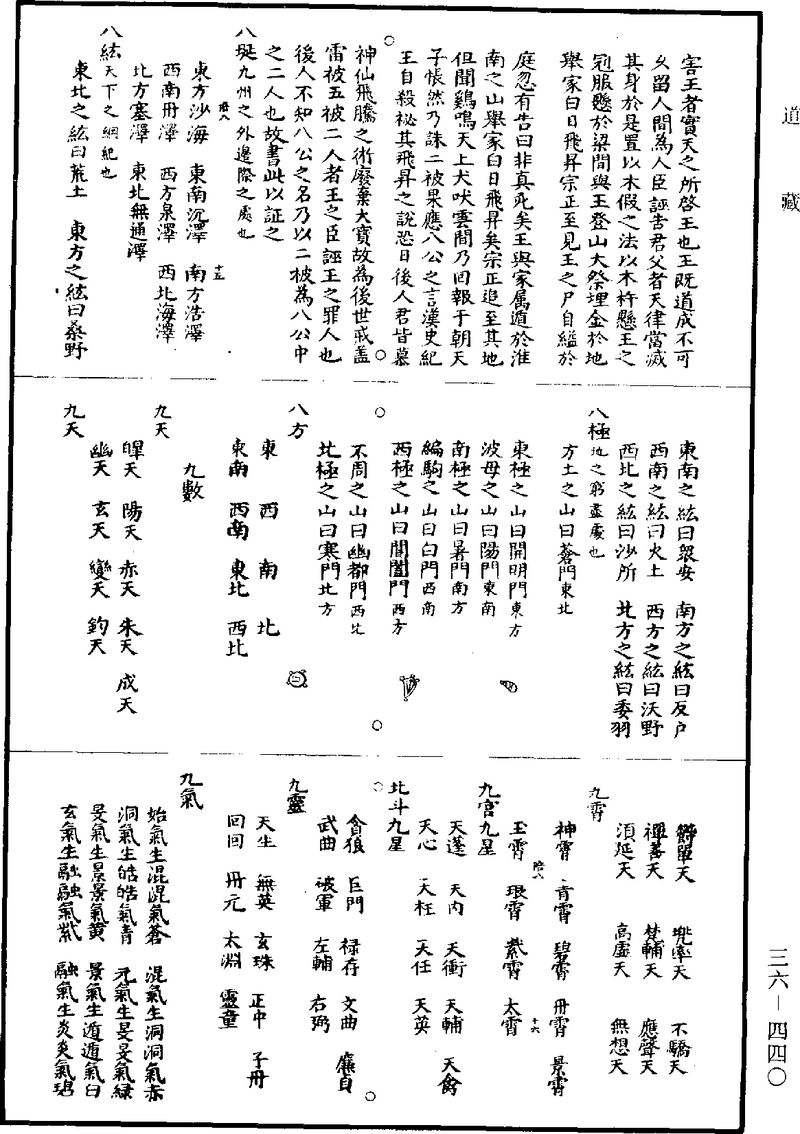 道藏
害王者實天之所啓王也王既道成不可
久留人間為人臣誣告君父者天律當滅
其身於是置以木假之法以木杵懸王之
冠服懸於梁間與王登山大祭埋金於地
舉家白日飛昇宗正至見王之尸自縊於
庭忽有告曰非真死矣王與家属遁於淮
南之山舉家白日飛昇矣宗正追至其地
但聞雞鳴天上犬吠雲間乃回報于朝天
子悵然乃誅二被果應八公之言漢史紀
王自殺祕其飛昇之說恐日後人君皆慕
神仙飛騰之術廢棄大寶故為後世戒蓋
雷被五被二人者王之臣誣王之罪人也
後人不知八公之名乃以二被為八公中
之二人也故書此以証之
八埏九州之外邊際之處也
東方沙海　東南沉澤　南方浩澤
西南丹澤　西方泉澤　西北海澤
北方塞澤　東北無通澤
八紘天下之網紀也
東北之紘曰荒土　東方之紘曰桑野
東南之紘曰衆安　南方之紘曰反户
西南之紘曰火土　西方之紘曰沃野
西北之紘曰沙所　北方之紘曰委羽
八極地之窮盡處也
方土之山曰蒼門東北
東極之山曰開明門東方
波母之山曰陽門東南
南極之山曰暑門南方
編駒之山曰白門西南
西極之山曰閶闔門西方
不周之山曰幽都門西北
北極之山曰寒門北方
八方
東　西　南　北
東南　西南　東北　西北
九數
九天
皡天　陽天　赤天　朱天　成天
幽天　玄天　變天　鈞天
九天
鬱單天　兠率天　不驕天
禪善天　梵輔天　應聲天
湏延天　高虛天　無想天
九霄
神霄　青霄　碧霄　丹霄　景霄
玉霄　琅霄　紫霄　太霄
九宫九星
天蓬　天内　天衝　天輔　天禽
天心　天柱　天任　天英
北斗九星
貪狼　巨門　禄存　文曲　廉貞
武曲　破軍　左輔　右弼
九靈
天生　無英　玄珠　正中　子丹
回回　丹元　太淵　靈童
九氣
始氣生混混氣蒼　混氣生洞洞氣赤
洞氣生皓皓氣青　元氣生旻旻氣緑
旻氣生景景氣黄　景氣生遁遁氣白
玄氣生融融氣紫　融氣生炎炎氣碧
三六—四四〇